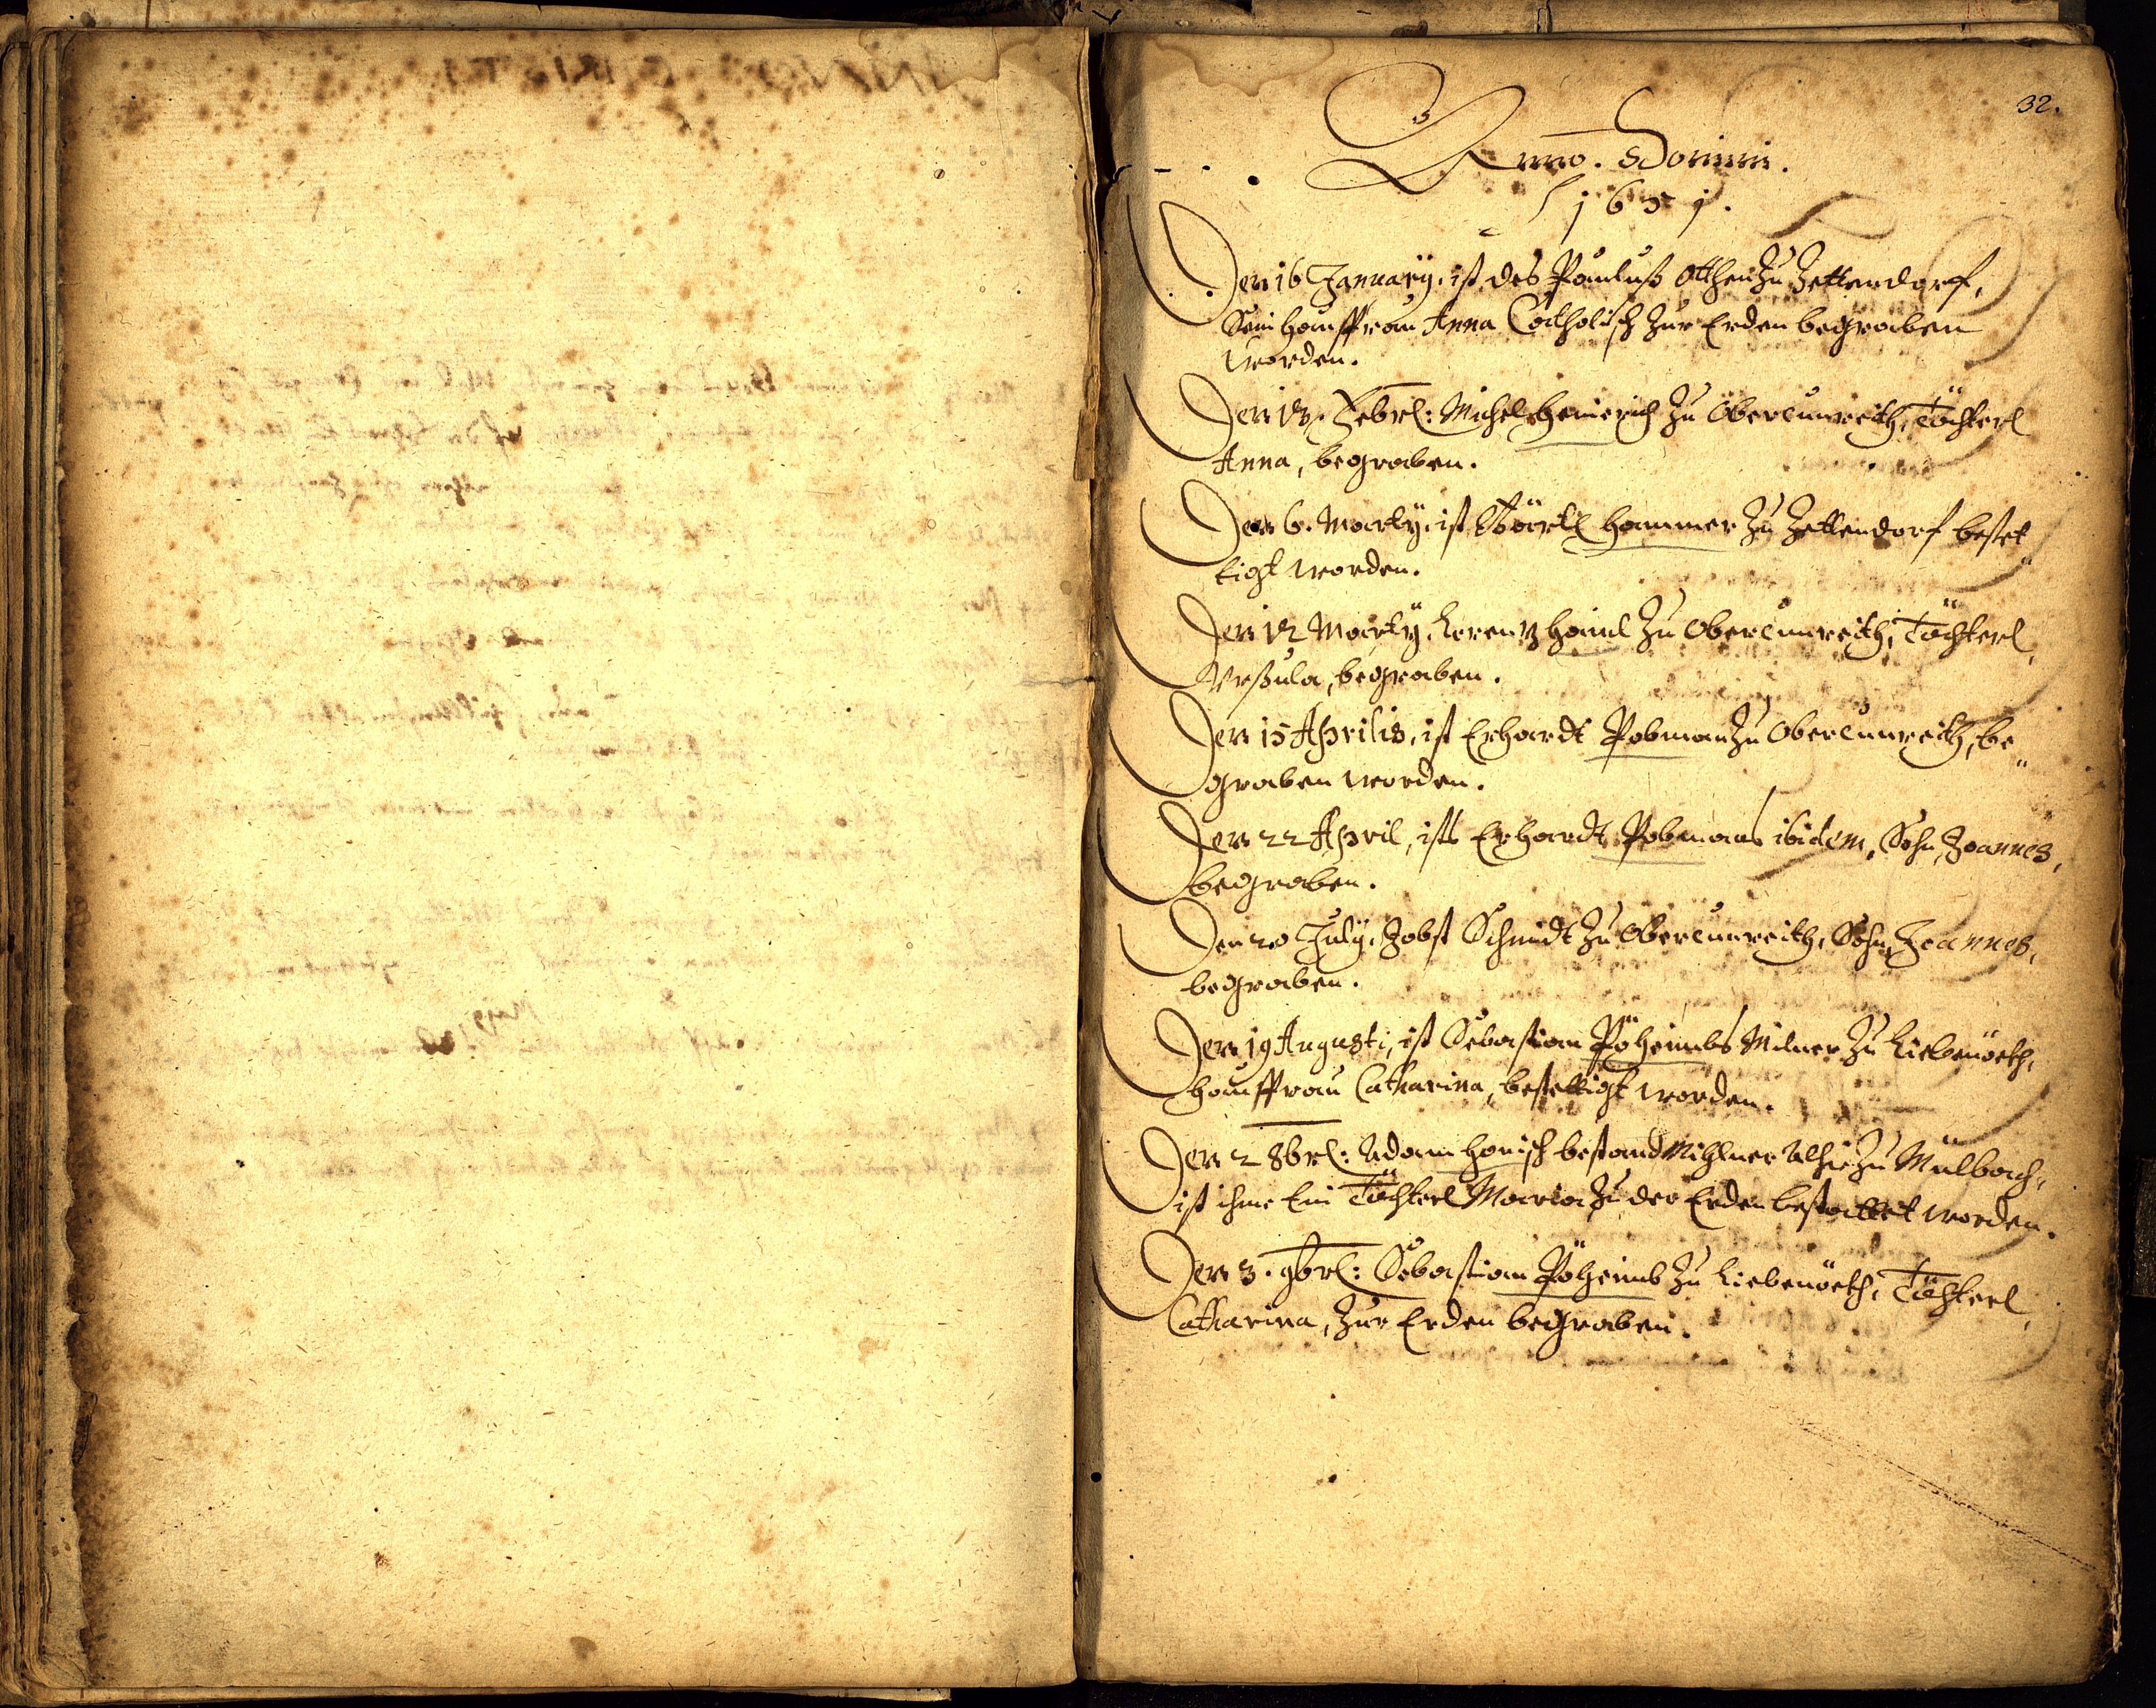 32.
Anno. Domini.
1651.
Den 16 Januarÿ, ist des Paulusß Otthen Zu Zettendorf,
Sein haußfrau Anna Catholisch Zur Erden begraben
worden.
Den Febrl: Michel Heinrich Zu Obercunreith, Töchterl
Anna, begraben.
Den 6. Martÿ, ist Bärtl Hammer Zu Zettendorf bestet
tigt worden.
Den 12 Martÿ, Lorentz Haml Zu Obercunreith, Töchterl,
Vrßula, begraben.
Den 15 Aprilis, ist Erhardt Pobman Zu Obercunreith, be"
graben worden.
Den 22 April, ists Erhardt Pobmans ibidem, Sohn, Joannes,
begraben.
Den 20 Julÿ, Jobst Schmidt Zu Obercunreith, Sohn, Joannes,
begraben.
Den 19 Augusti, ist Sebastian Pöheimbs Milner Zu Liebenöeth,
haußfrau Catharina, bestettigt worden.
Den 2 8brl: Adam Hanisch bestand Mihlner Alhie Zu Mülbach,
ist ihme Ein Töchterl Maria Zu der Erden bestattet worden.
Den 3. 9brl: Sebastian Pöheimb Zu Liebenöeth, Töchterl,
Catharina, Zur Erden begraben.